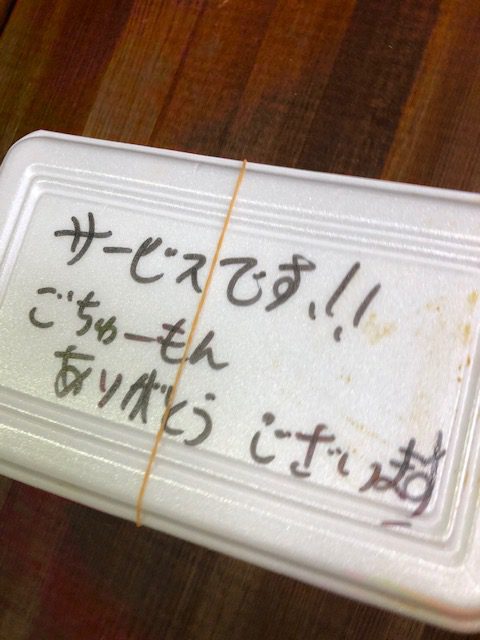 サービスです!!
ごちゅーもん
ありがとう ございます